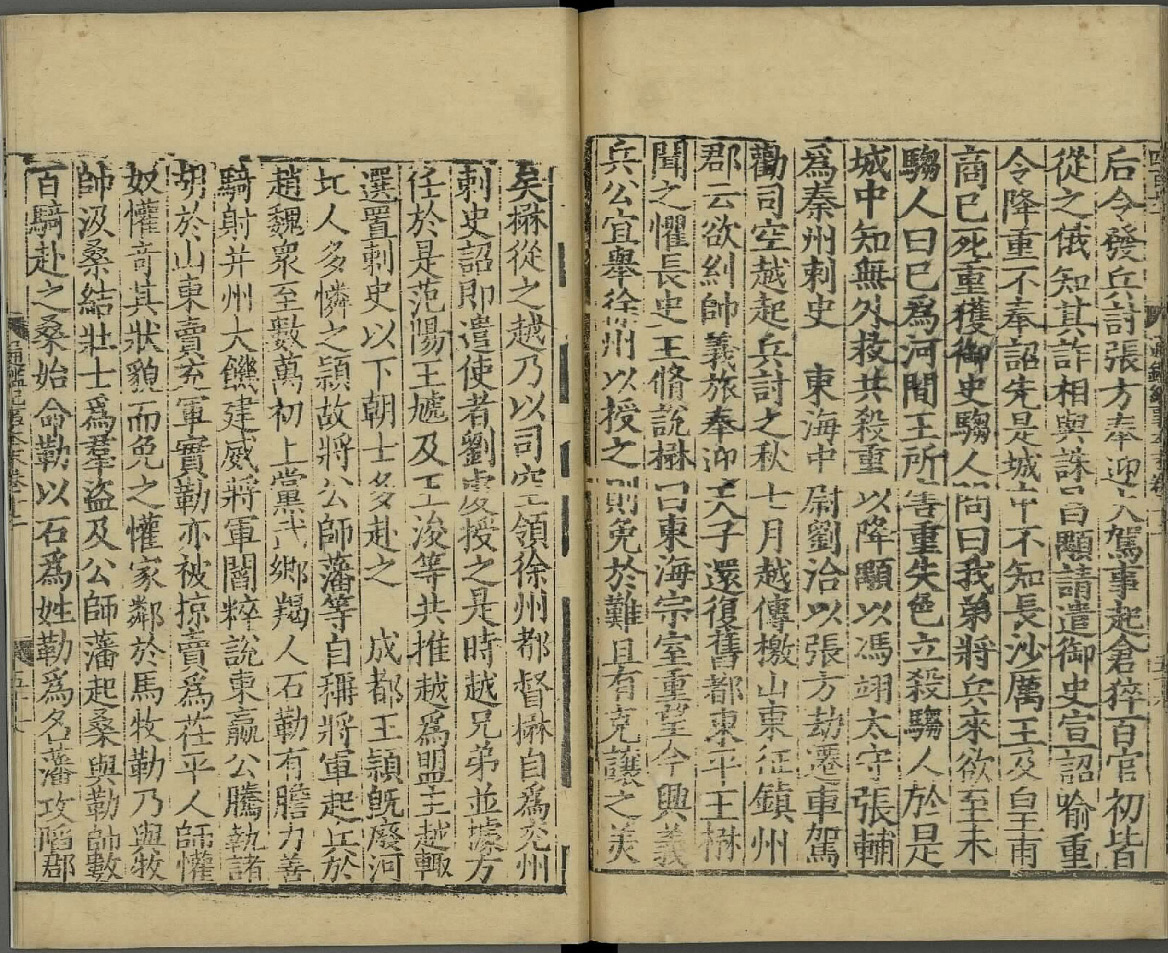 后令發兵討張方奉迎大駕事起倉猝百官初皆
從之俄知其詐相與誅昌顒請遣御史宣詔喻重
令降重不奉詔先是城中不知長沙厲王及皇甫
商已死重獲御史騶人問曰我弟將兵來欲至未
騶人曰已爲河間王所害重失色立殺騶人於是
城中知無外救共殺重以降顒以馮翊太守張輔
爲秦州刺史 東海中尉劉洽以張方劫遷車駕
勸司空越起兵討之秋七月越傳檄山東征鎮州
郡云欲糾帥義旅奉迎天子還復舊都東平王楙
聞之懼長史王脩說楙曰東海宗室重望今興義
兵公宜舉徐州以授之則免於難且有克讓之美
矣楙從之越乃以司空領徐州都督楙自爲兖州
刺史詔即遣使者劉虔授之是時越兄弟並據方
任於是范陽王虓及王浚等共推越爲盟主越輙
選置刺史以下朝士多赴之 成都王頴旣廢河
北人多憐之頴故將公師藩等自稱將軍起兵於
趙魏衆至數萬初上黨武鄉羯人石勒有膽力善
騎射并州大饑建威將軍閻粹說東嬴公騰執諸
胡於山東賣充軍實勒亦被掠賣爲茌平人師懽
奴懽奇其狀貌而免之懽家鄰於馬牧勒乃與牧
帥汲桑結壯士爲羣盜及公師藩起桑與勒帥數
百騎赴之桑始命勒以石爲姓勒爲名藩攻陷郡